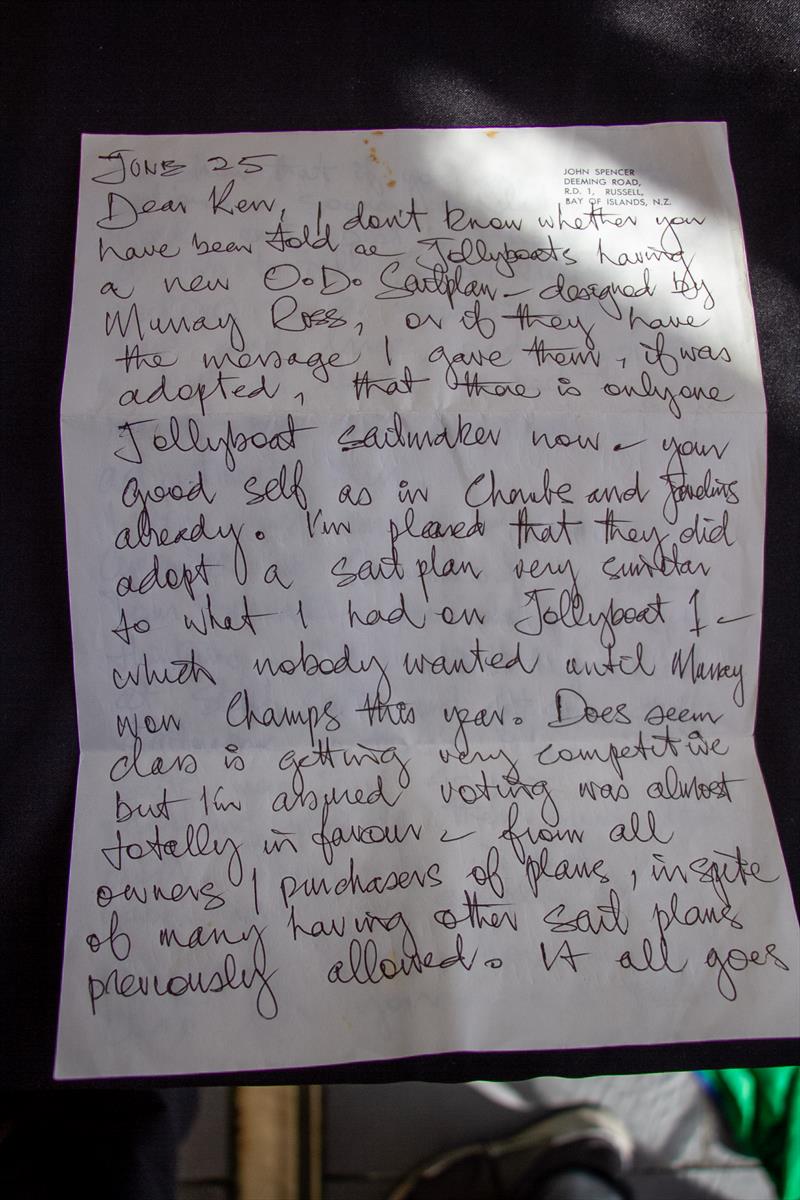 JUNE 25
JOHN SPENCER
DEEMING ROAD,
R.D. 1, RUSSELL,
BAY OF ISLANDS, N.Z.
Dear Ken, I don't know whether you
have been told Jollyboats having
a new O.D. Sailplan - designed by
Murray Ross, or if they have
the message I gave them, if was
adopted, that there is only one
Jollyboat sailmaker now - your
good self as in and
already. I'm pleased that they did
adopt a sail plan very similar
to what I had on Jollyboat I -
which nobody wanted until Murray
won Champs this year. Does seem
class is getting very competitive
but I'm assured voting was almost
totally in favour - from all
owners / purchasers of plans, inspite
of many having other sail plans
previously allowed. It all goes